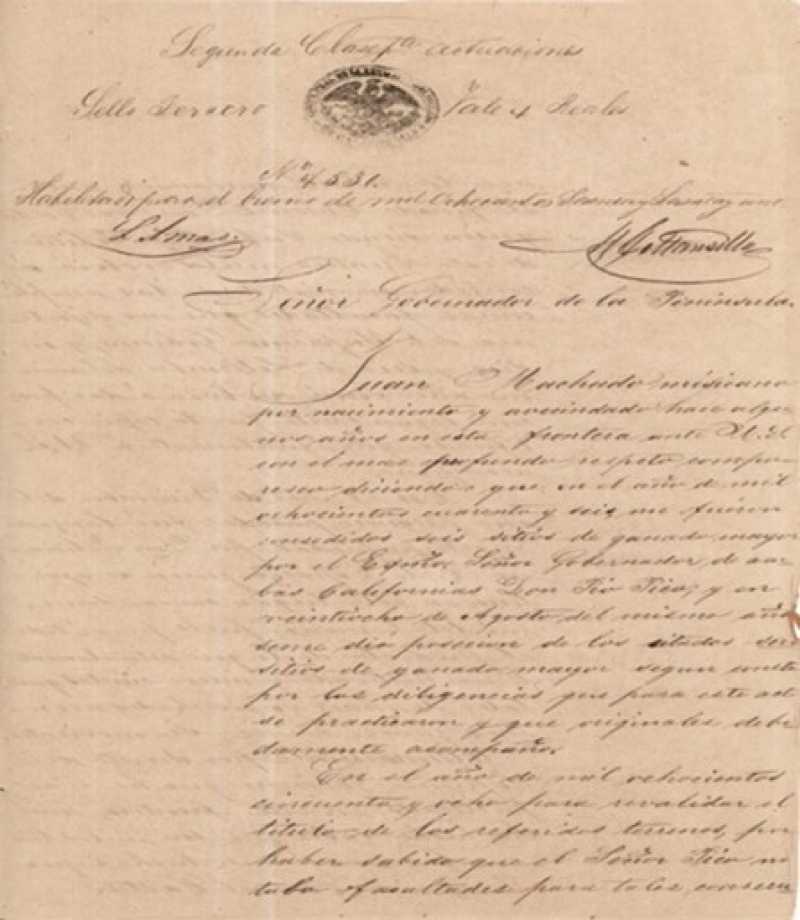 Segunda Clase pª actuaciones
Sello Tercero Vale 4 Reales
Nº 4531.
Habilitado para el bienio de mil ochocientos Sesenta y Sesenta y uno
Señor Governador de la Peninsula.
Juan Machado misicano
por nacimiento y avecindado hace algu
nos años en esta frontera ante U.S.
con el mas profundo respeto compa
resco diciendo: que en el año de mil
ochocientos cuarenta y seis me fueron
consedidos seis sitios de ganado mayor
por el Exmo. Señor Gobernador de am
bas Californias Don Pio Pico; y en
veintiocho de Agosto del mismo año
seme dió posecion de los sitados seis
sitios de ganado mayor segun consta
por las diligencias que para este act
se practicaron y que originales debi
damente acompaño.
En el año de mil ochocientos
cincuenta y ocho para revalidar el
titulo de los referidos terrenos, por
haber sabido que el Señor Pico no
tubo facultades para tales